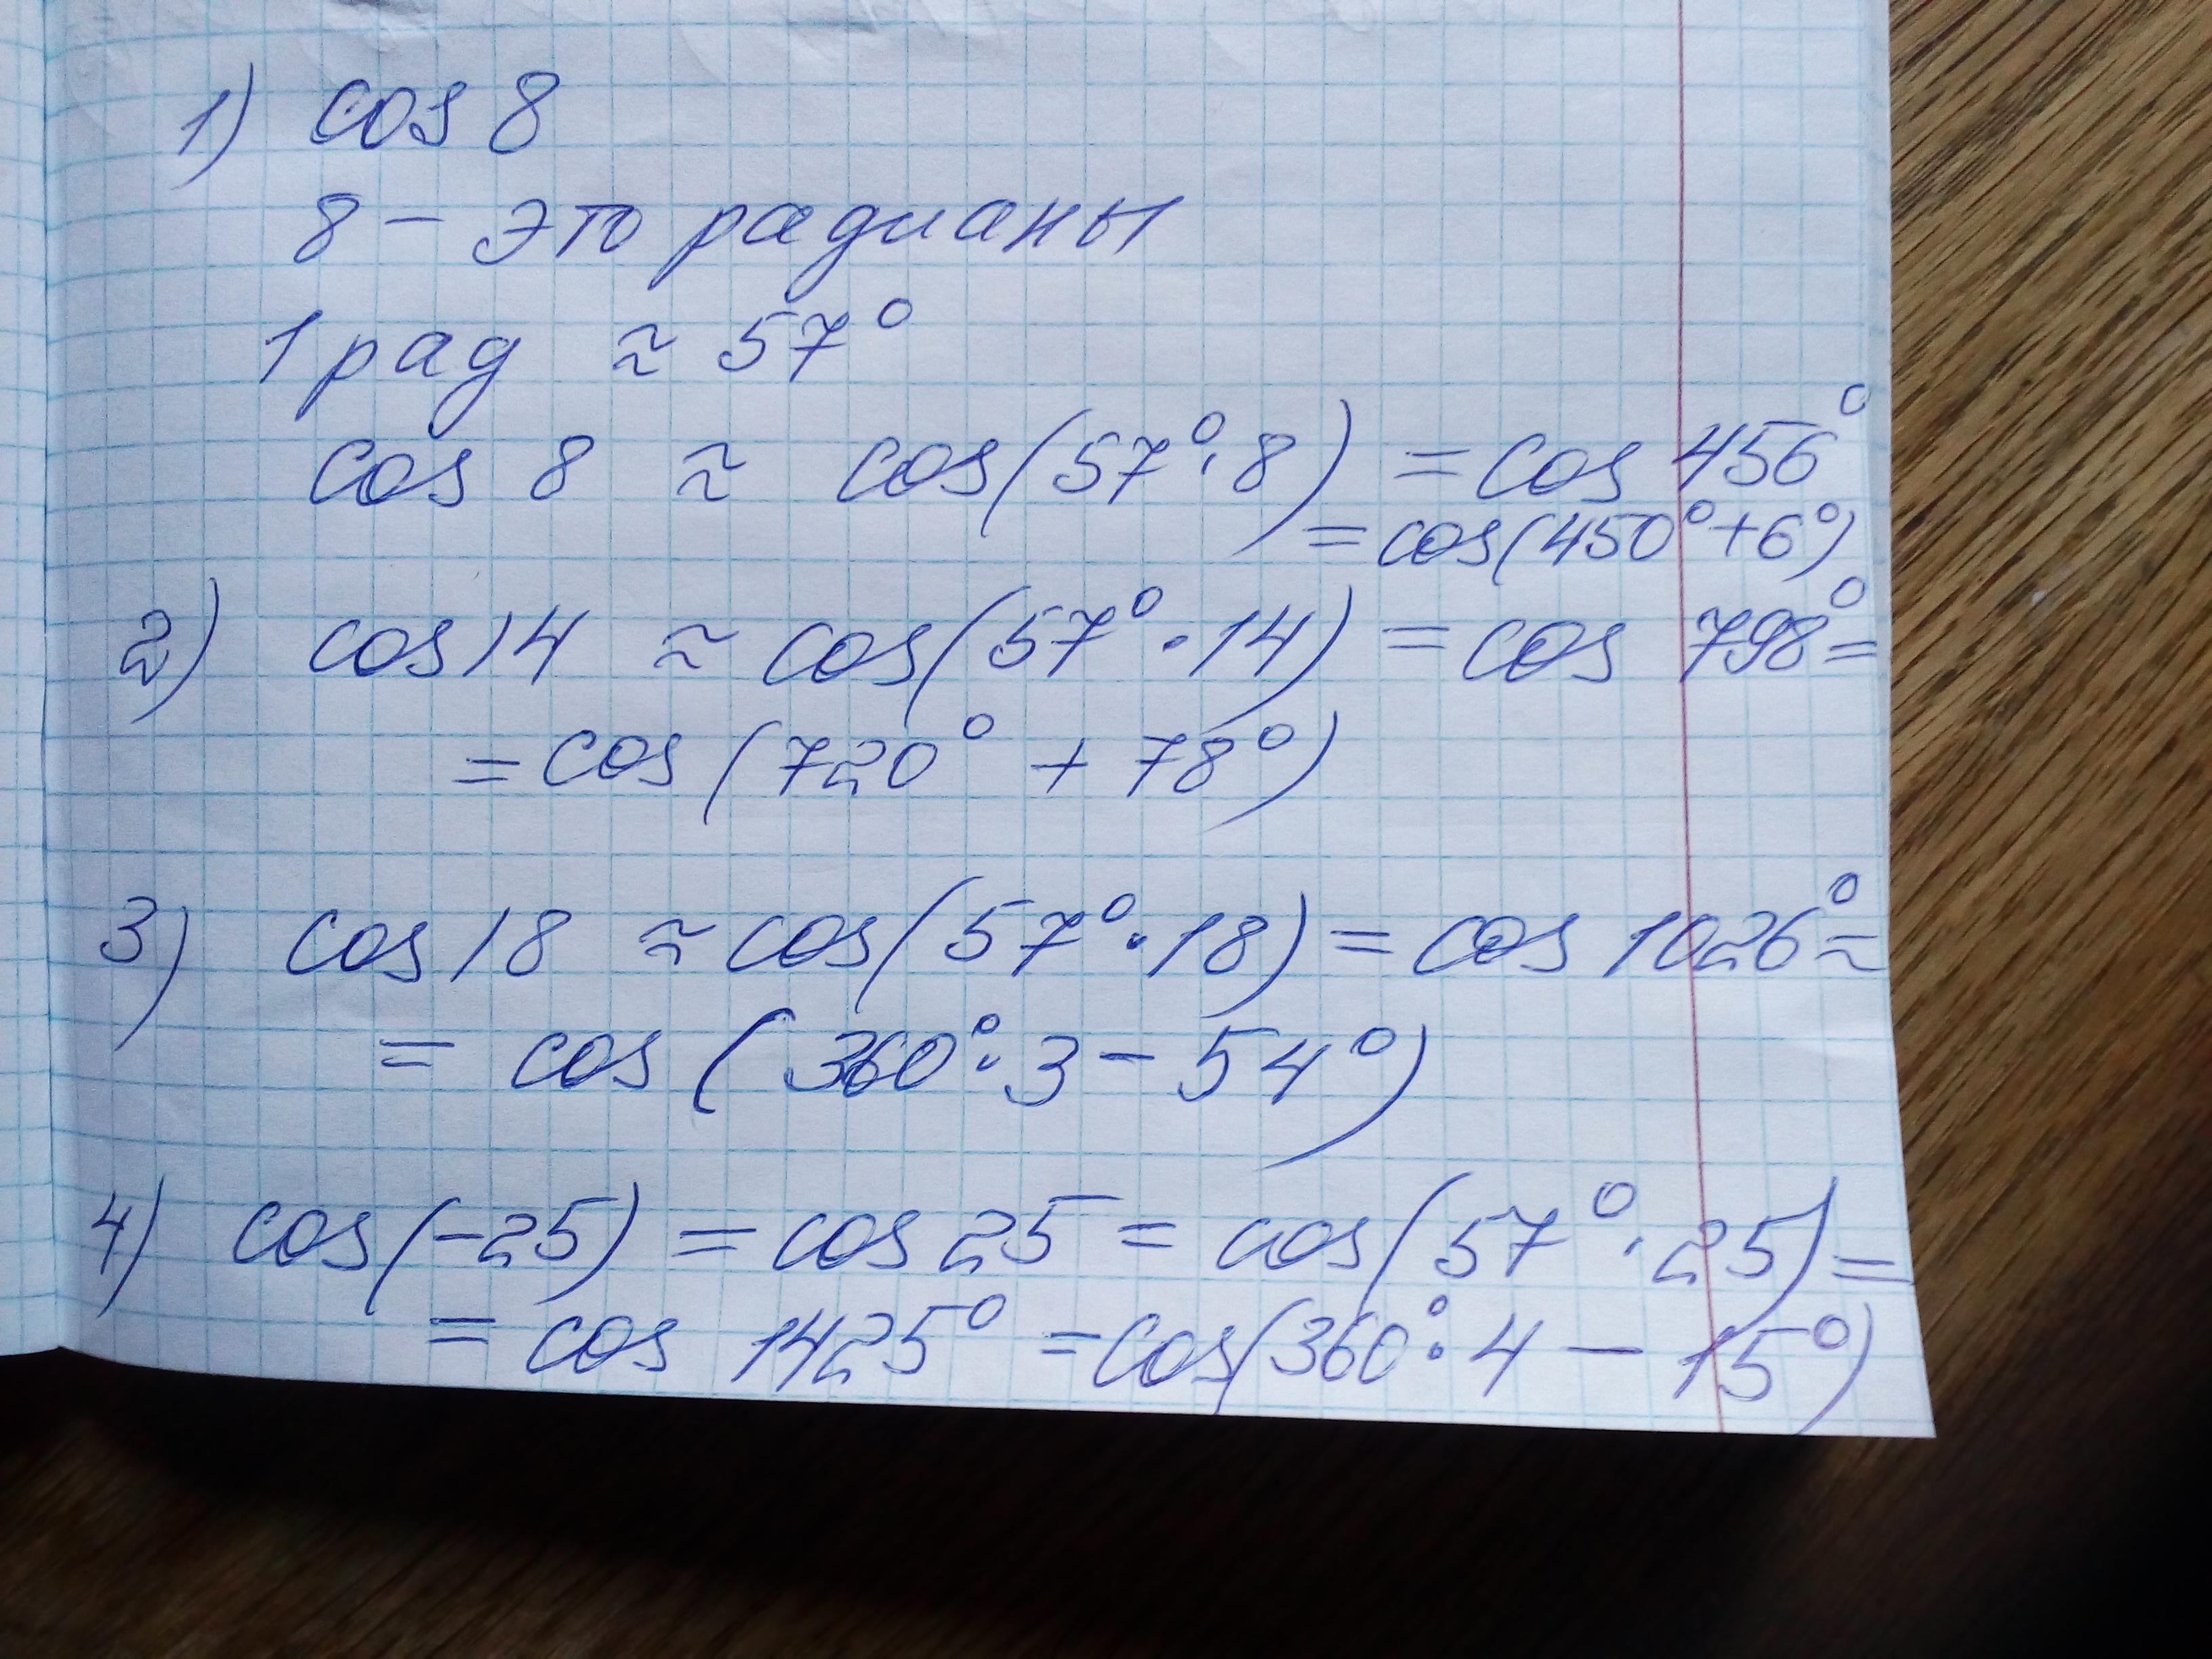 1) cos 8
8 – это радианы
1 рад ≈ 57°
cos 8 ≈ cos(57°·8) = cos 456°
= cos(450°+6°)
2) cos 14 ≈ cos(57°·14) = cos 798° =
= cos(720° + 78°)
3) cos 18 ≈ cos(57°·18) = cos 1026° ≈
= cos(360°·3 – 54°)
4) cos(–25) = cos 25 = cos(57°·25) =
= cos 1425° = cos(360°·4 – 15°)